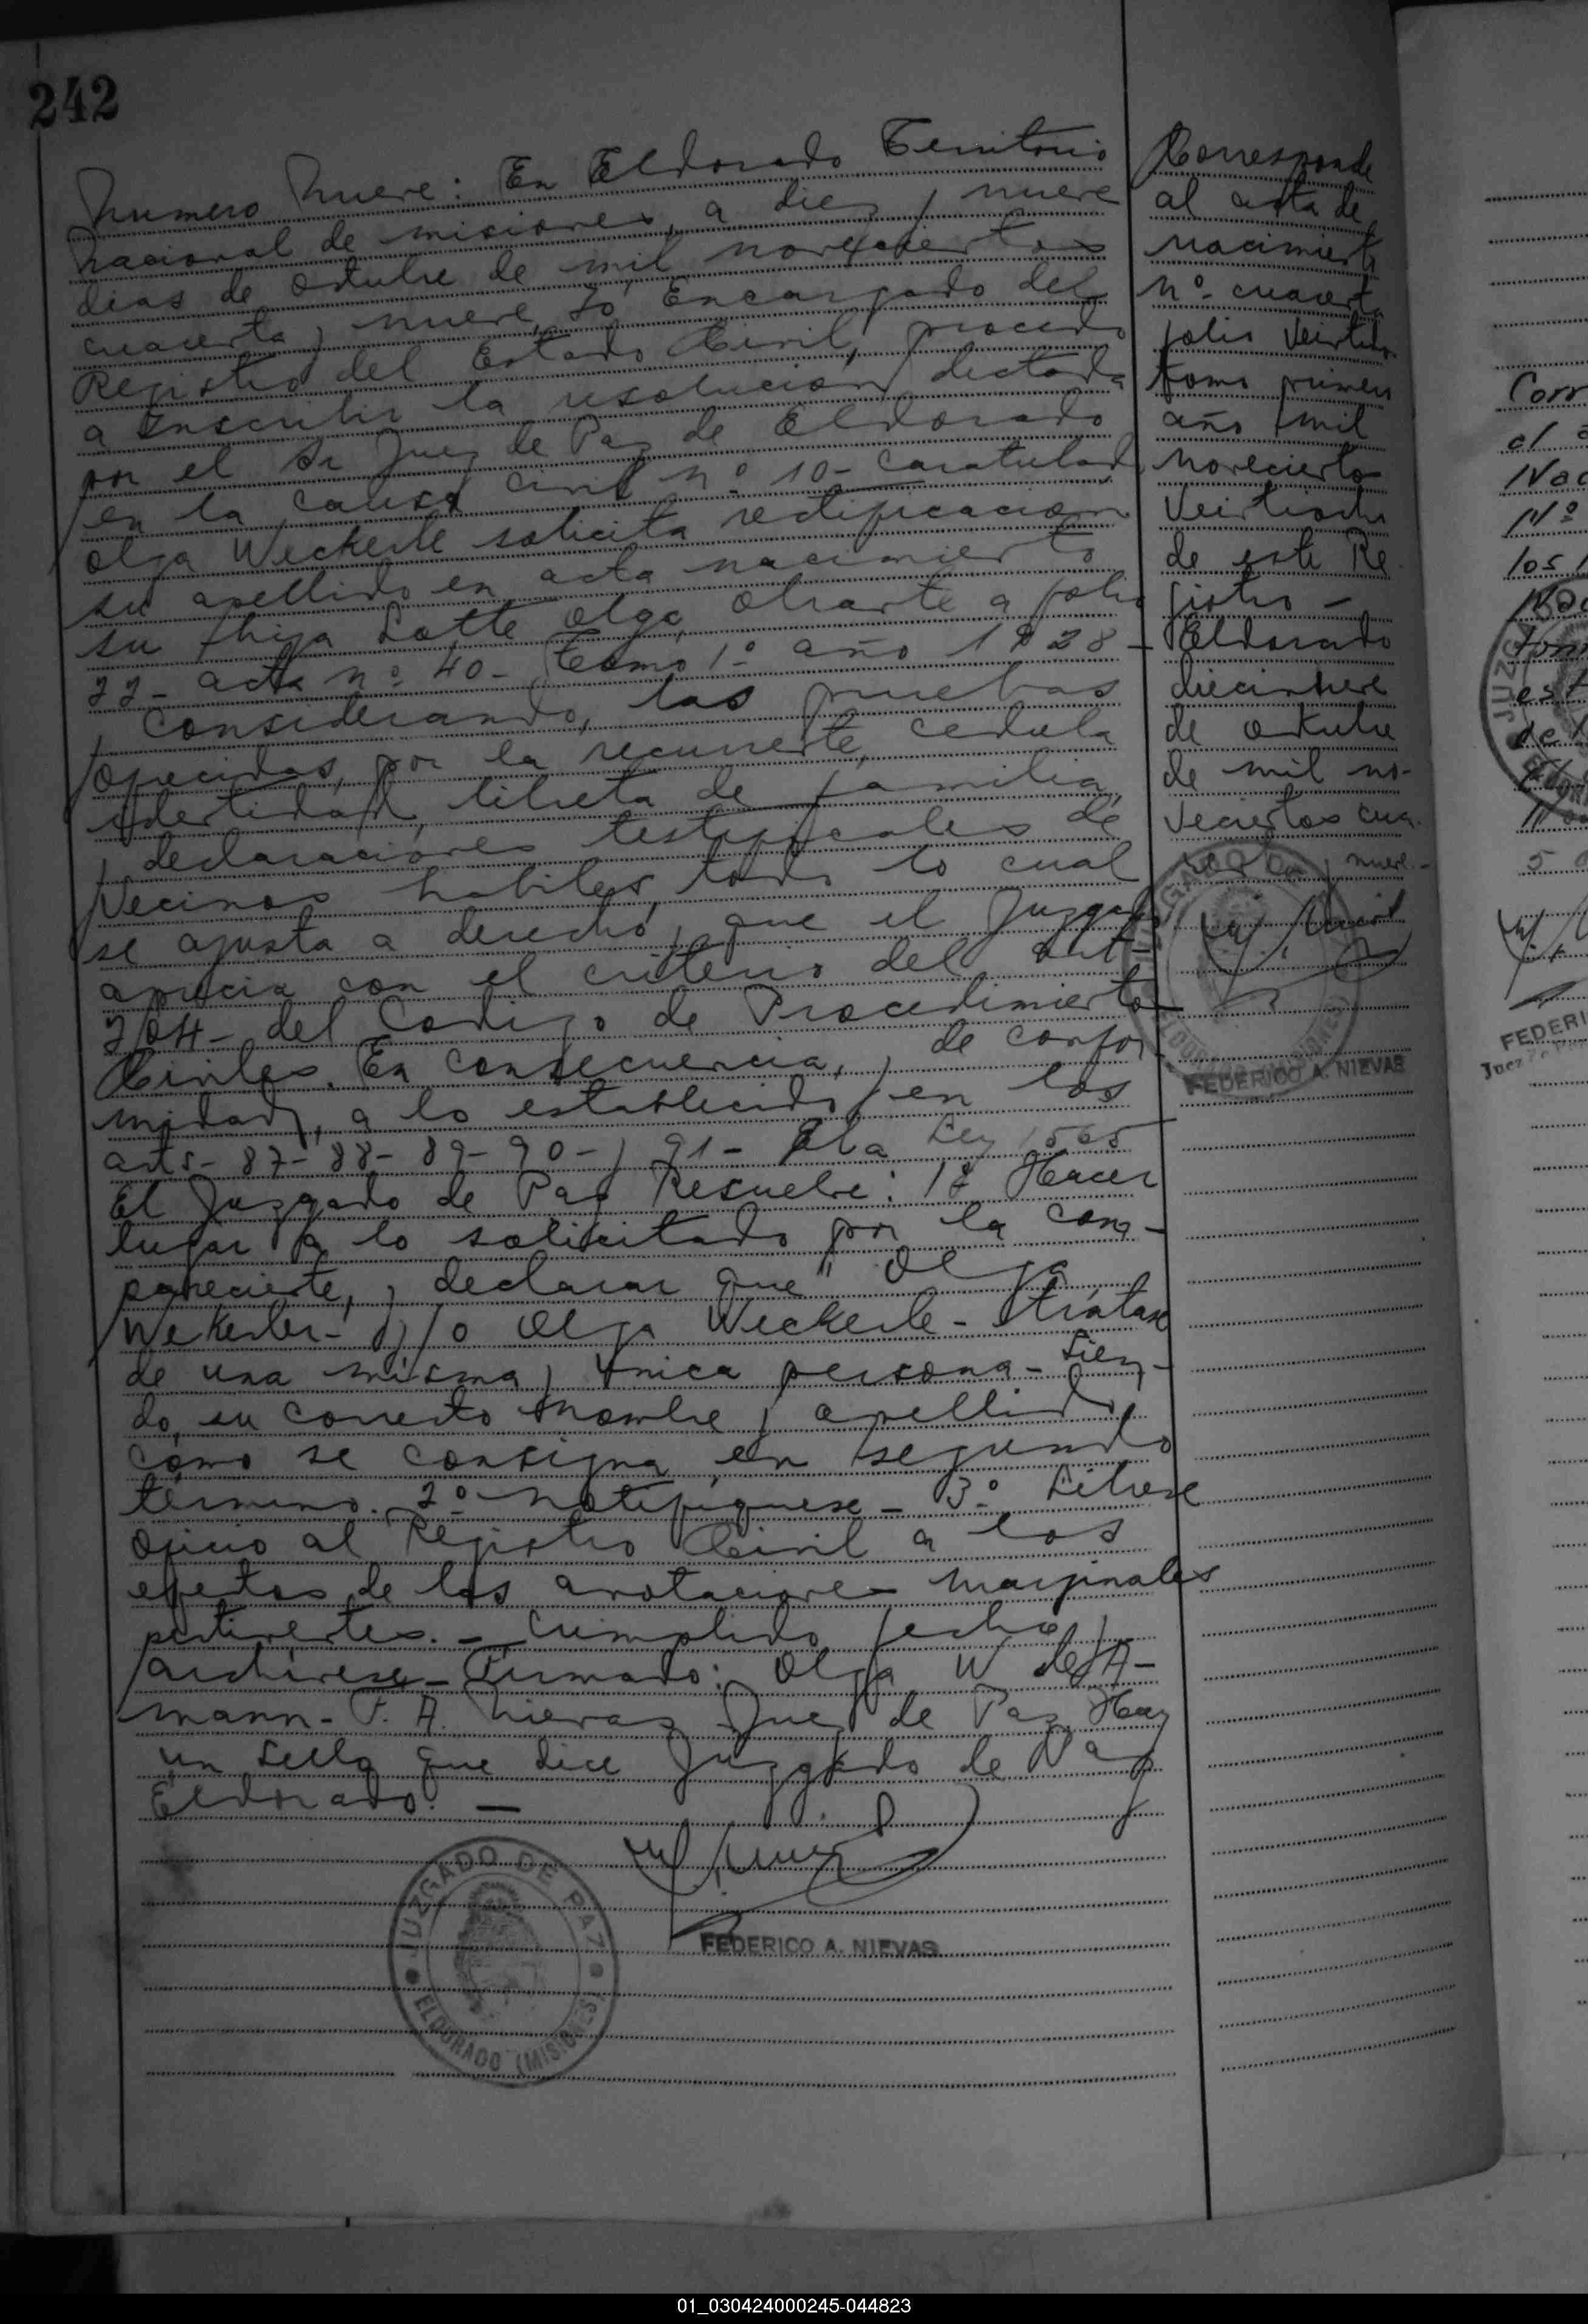 242
Numero Nueve: En Eldorado Territorio
Nacional de Misiones, a diez y nueve
dias de Octubre de mil novecientos
cuarenta y nueve, Yo Encargado del
Registro del Estado Civil, procedo
a inscribir la resolucion dictada
por el Sr Juez de Paz de Eldorado
en la causa civil nº 10- caratulada
Olga Weckerle solicita rectificacion
su apellido en acta nacimiento
su hija Lotte Olga, obrante a folio
22- acta nº 40- Tomo 1º año 1928-
y considerando, las pruebas
ofrecidas por la recurrente, cedula
identidad, libreta de familia,
y declaraciones testificales de
vecinos habiles, todo lo cual
se ajusta a derecho, y que el Juzgado
aprecia con el criterio del art
204- del Codigo de Procedimientos
Civiles. En consecuencia, y de confor-
midad, a lo establecido en los
arts- 87- 88- 89- 90- y 91- de la Ley 1565
El Juzgado de Paz Resuelve: 1º Hacer
lugar a lo solicitado por la com-
pareciente, y declarar que "Olga
Wekerler- y/o Olga Weckerle- tratase
de una misma y unica persona- sien-
do, su correcto nombre y apellido,
como se consigna en segundo
termino. 2º Notifiquese- 3º Librese
oficio al Registro Civil a los
efectos de las anotaciones marginales
pertinentes.- Cumplido, fecho,
archivese- Firmado: Olga W de
mann- F. A. Nievas Juez de Paz, Hay
un sello que dice Juzgado de Paz
Eldorado. -
JUZGADO DE PAZ
ELDORADO (MISIONES)
FEDERICO A. NIEVAS
Corresponde
al acta de
nacimiento
nº cuarenta
folio veintidos
tomo primero
año mil
novecientos
veintiocho
de este Re
gistro -
Eldorado
diecinueve
de octubre
de mil no-
vecientos cua-
renta y nueve.-
FEDERICO A. NIEVAS
Corr
el
Nac
Nº
los
FEDERI
Juez
01_030424000245-044823